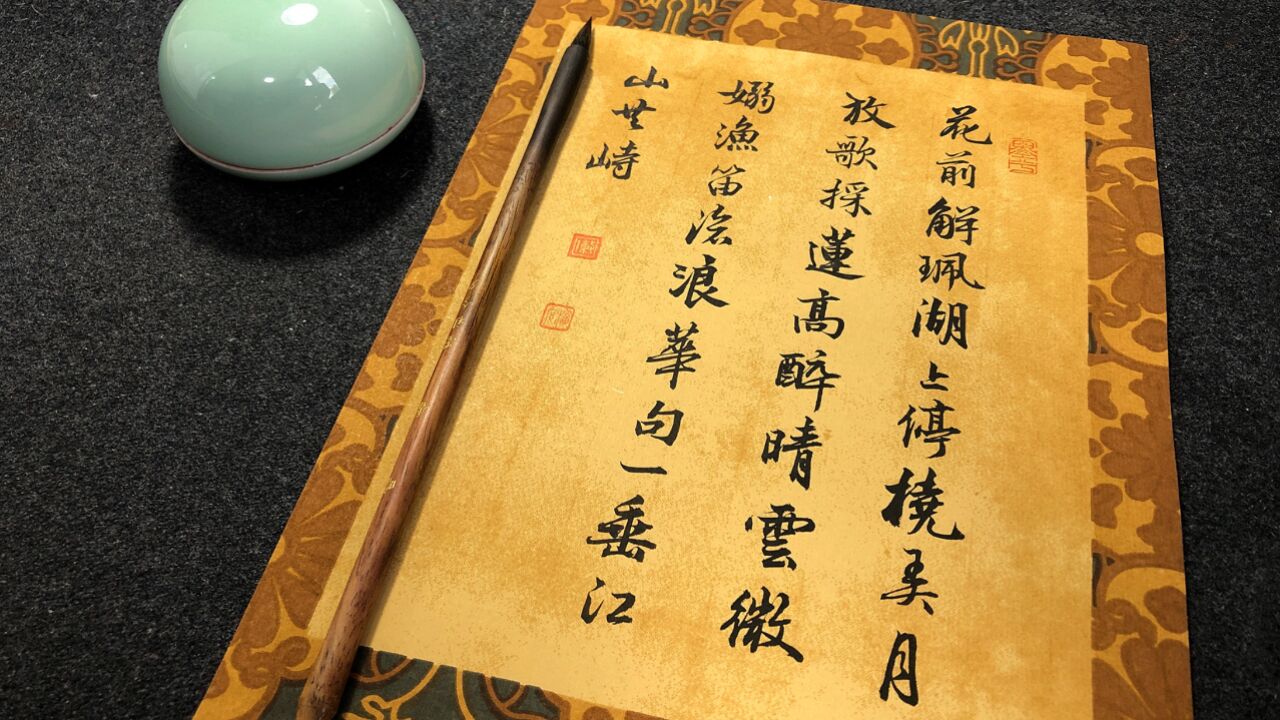 花前解珮湖上停橈弄月
放歌採蓮高醉晴雲微
嫋漁笛滄浪華句一垂江
山共峙